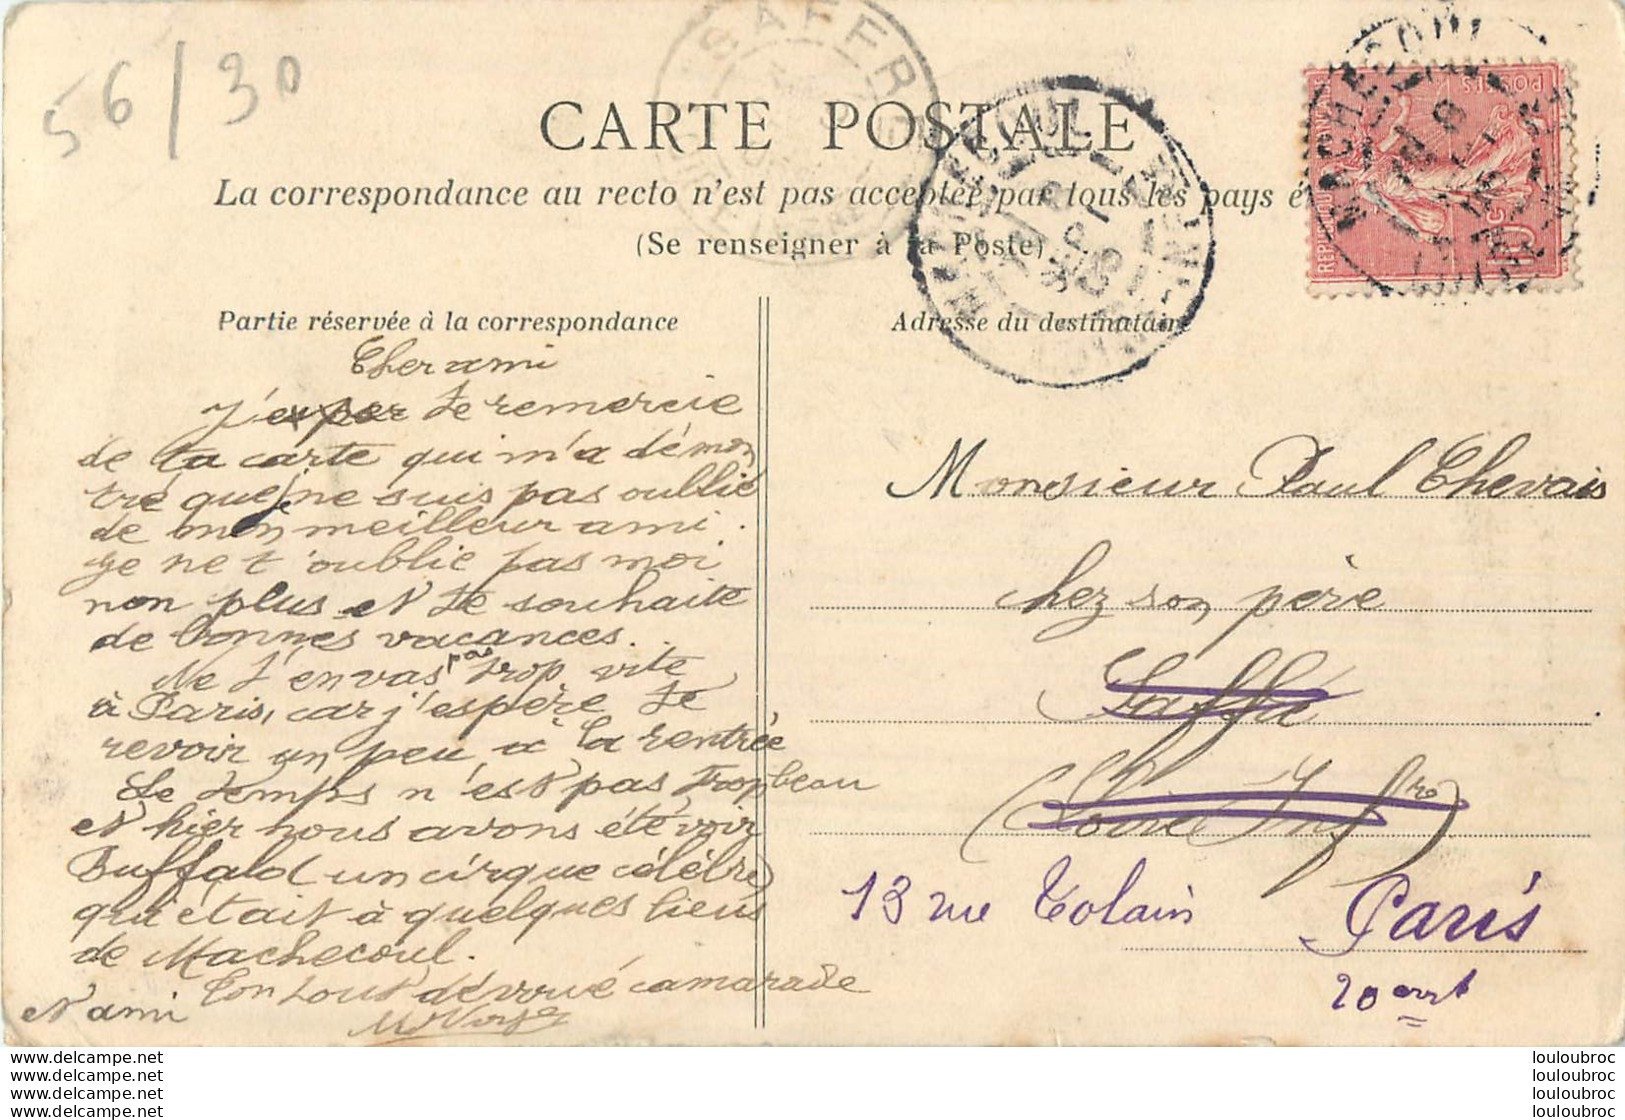 56/30
SAFFR
CARTE POSTALE
La correspondance au recto n'est pas acceptée par tous les pays é
(Se renseigner à la Poste)
MACHECOUL
MACHECOUL
REPUBLIQUE FRANCAISE
POSTES
10
Partie réservée à la correspondance
Adresse du destinataire
Cher ami
J'espér te remercie
de ta carte qui m'a démon
tré que je ne suis pas oublié
de mon meilleur ami.
Je ne t'oublie pas moi
non plus et te souhaite
de bonnes vacances.
Ne t'en vas pas trop vite
à Paris, car j'espère te
revoir un peu à la rentrée
Le temps n'est pas trop beau
et hier nous avons été voir
Buffalo (un cirque célèbre)
qui était à quelques lieus
de Machecoul.
Ton tout dévoué camarade
et ami
Monsieur Paul Chevais
chez son père
Saffré
(Loire Infre)
13 rue Tolain Paris
20 arrt
louloubroc.net
louloubroc.net
louloubroc.net
louloubroc.net
louloubroc
louloubroc
louloubroc
louloubroc